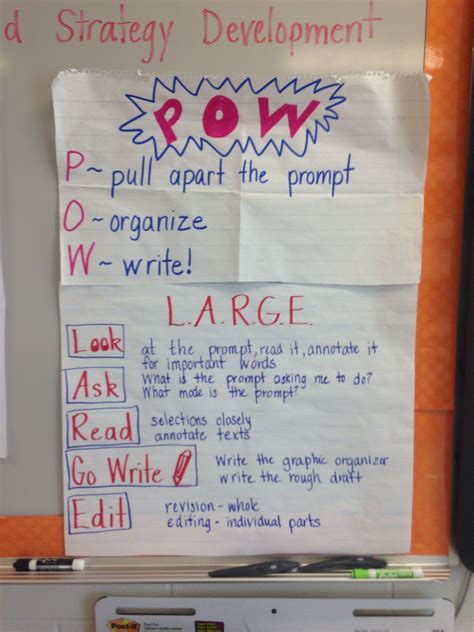 d Strategy Development
POW
P~ pull apart the prompt
O~ organize
W~ write!
L.A.R.G.E.
Look at the prompt, read it, annotate it
for important words
Ask What is the prompt asking me to do?
What mode is the prompt?
Read selections closely
annotate texts
Go Write Write the graphic organizer
write the rough draft
Edit revision - whole
editing - individual parts
EXPO
Post-it